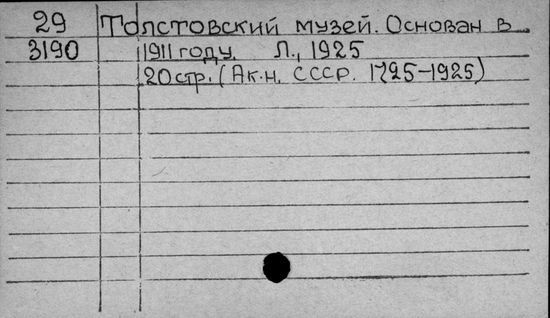 29 Толстовский музей. Основан в
3190 1911 году. Л., 1925
20 стр. (Ак.н. СССР. 1725-1925)